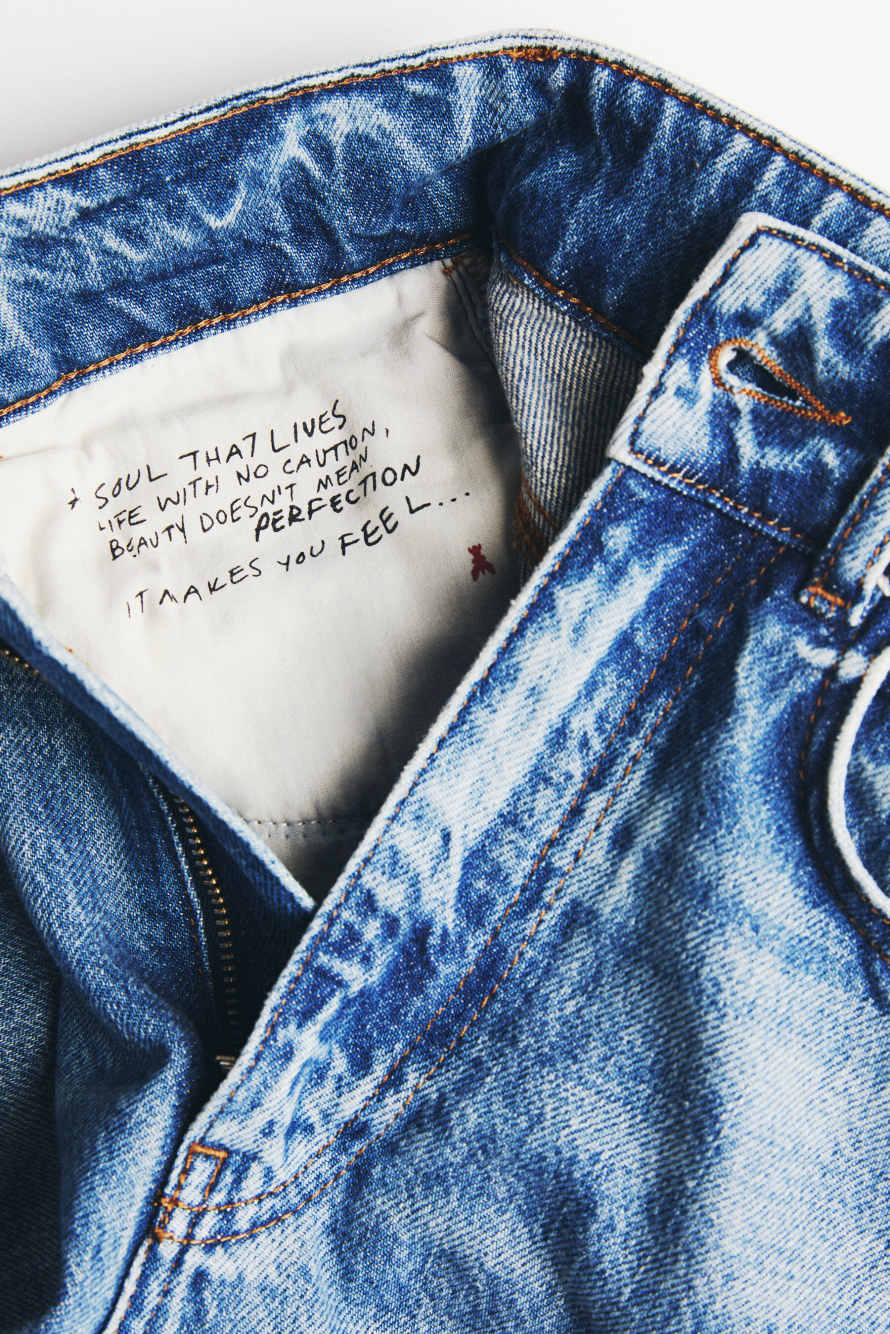 A SOUL THAT LIVES
LIFE WITH NO CAUTION,
BEAUTY DOESN'T MEAN
PERFECTION
IT MAKES YOU FEEL...